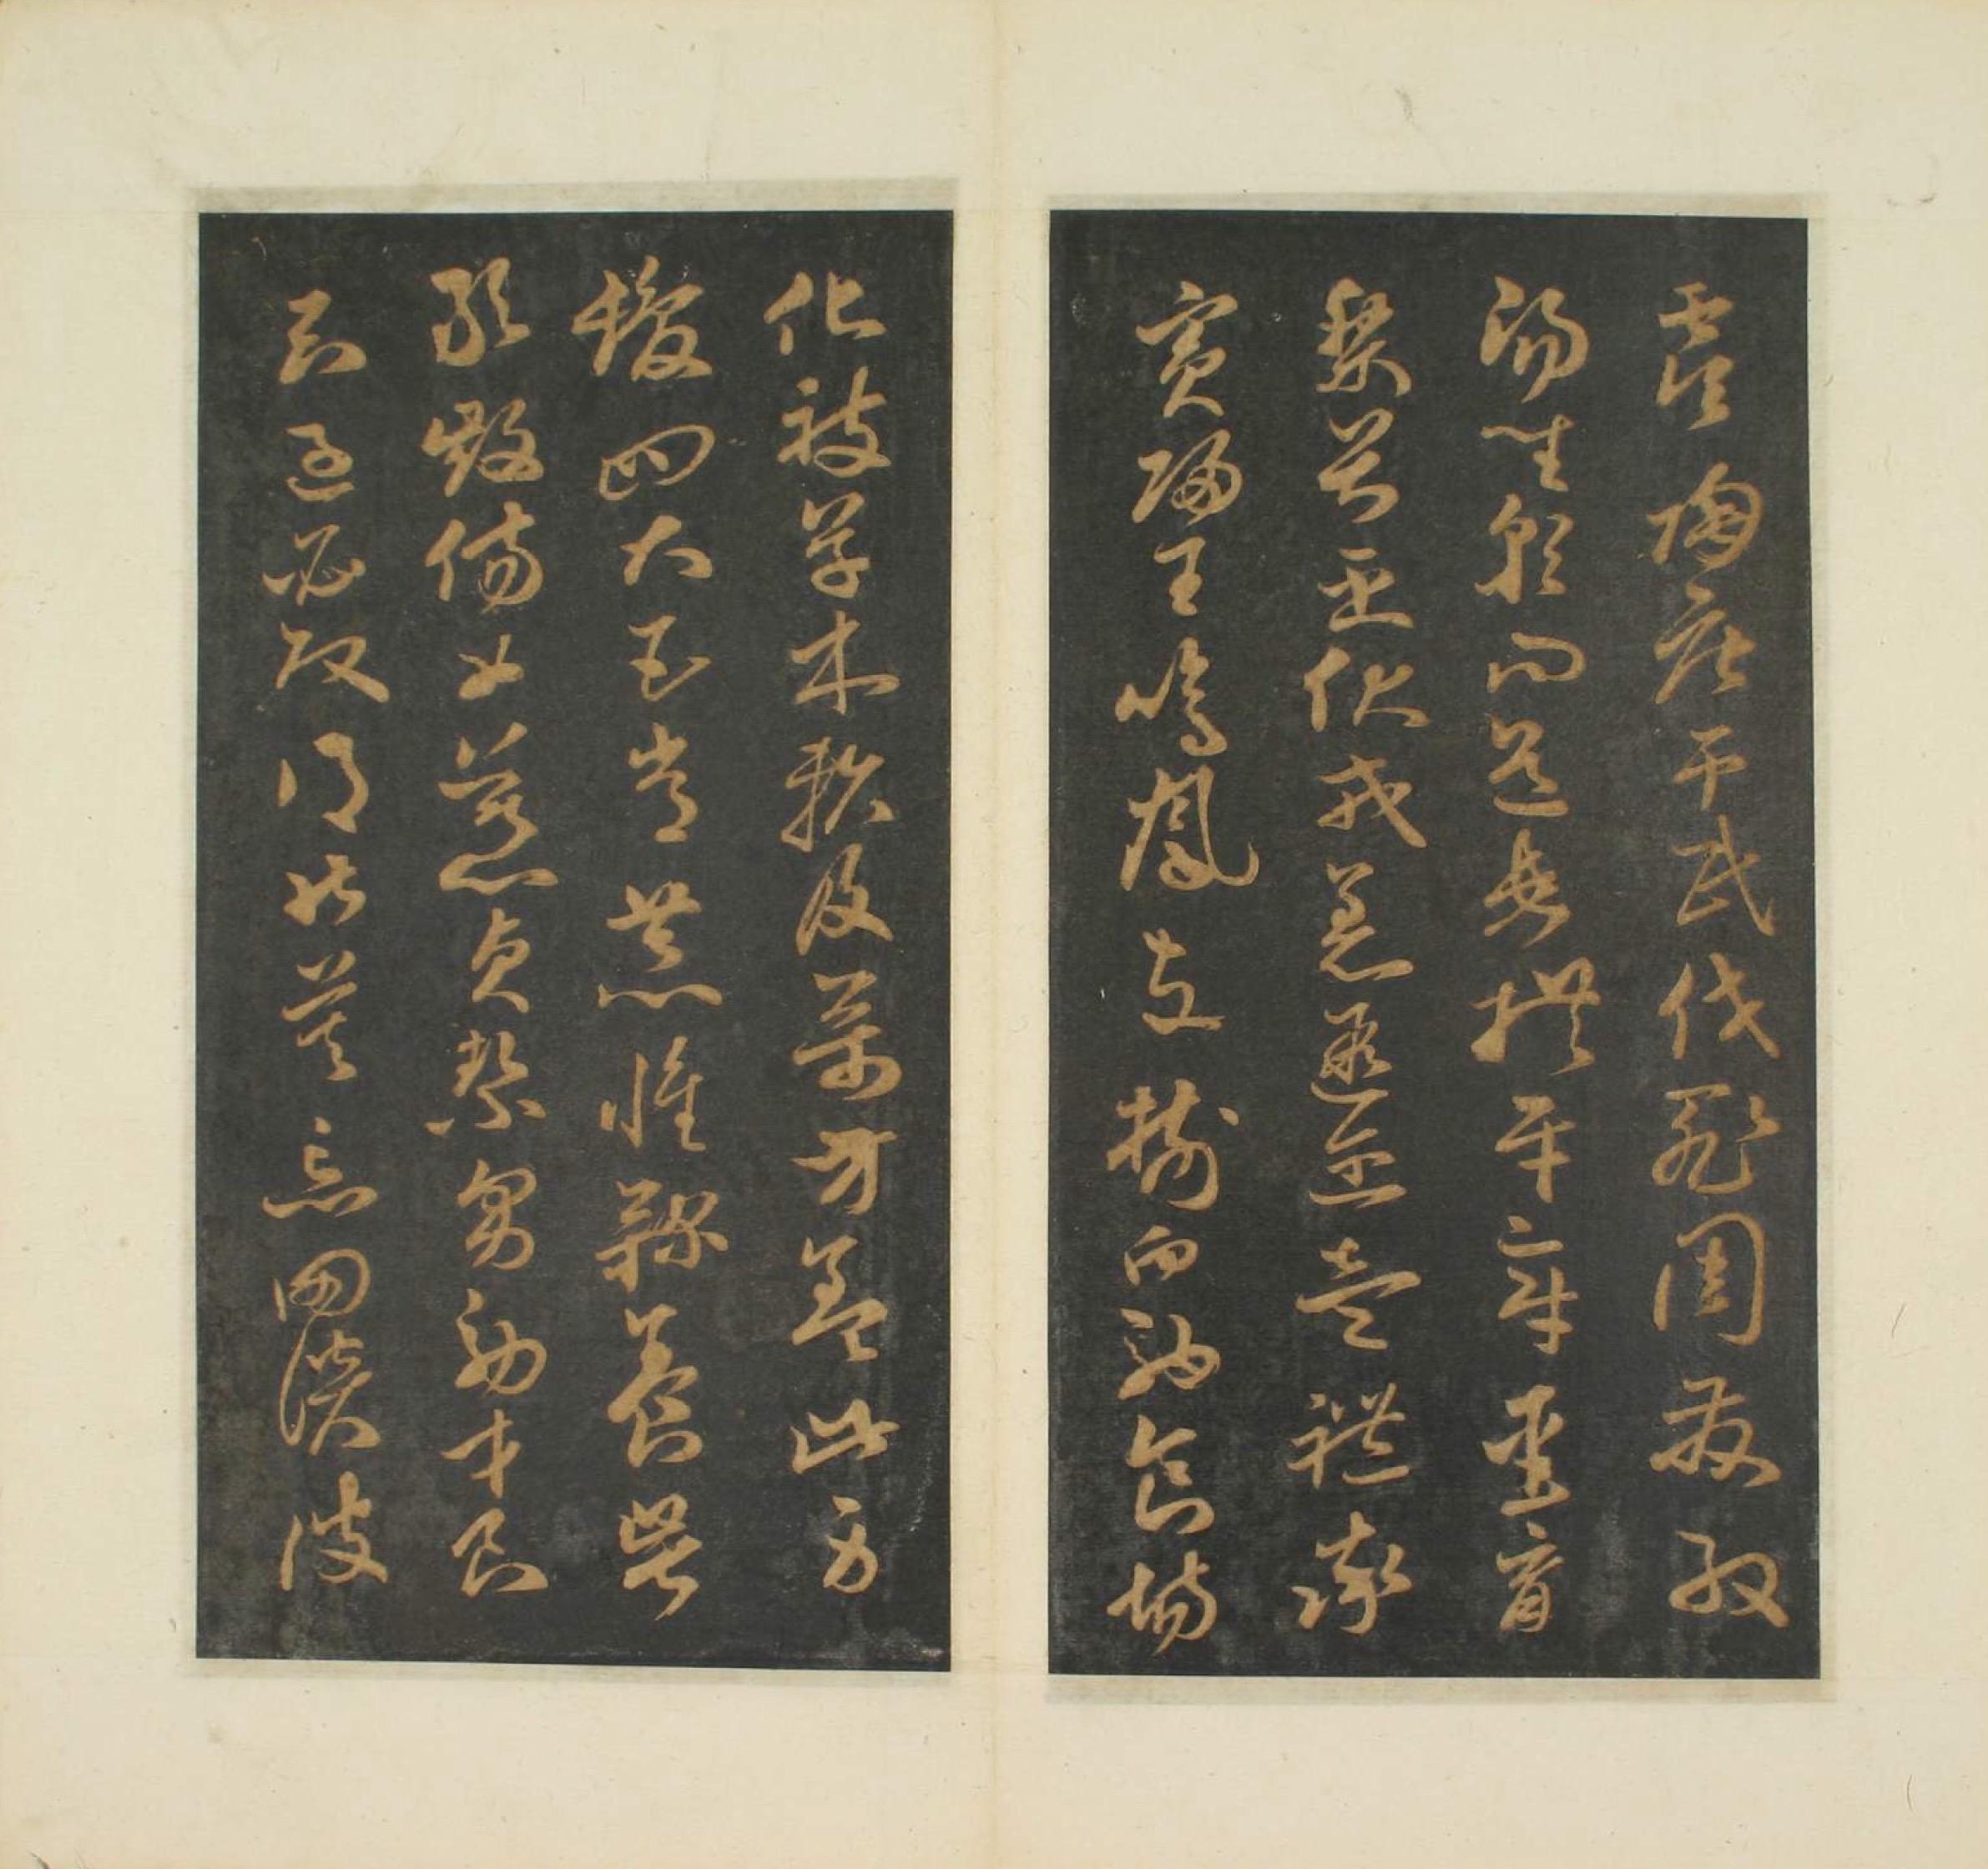 虞陶唐弔民伐罪周發殷
湯坐朝問道垂拱平章愛育
黎首臣伏戎羌遐邇壹體率
賓歸王鳴鳳在樹白駒食場
化被草木賴及萬方蓋此身
髮四大五常恭惟鞠養豈
敢毀傷女慕貞絜男效才良
知過必改得能莫忘罔談彼